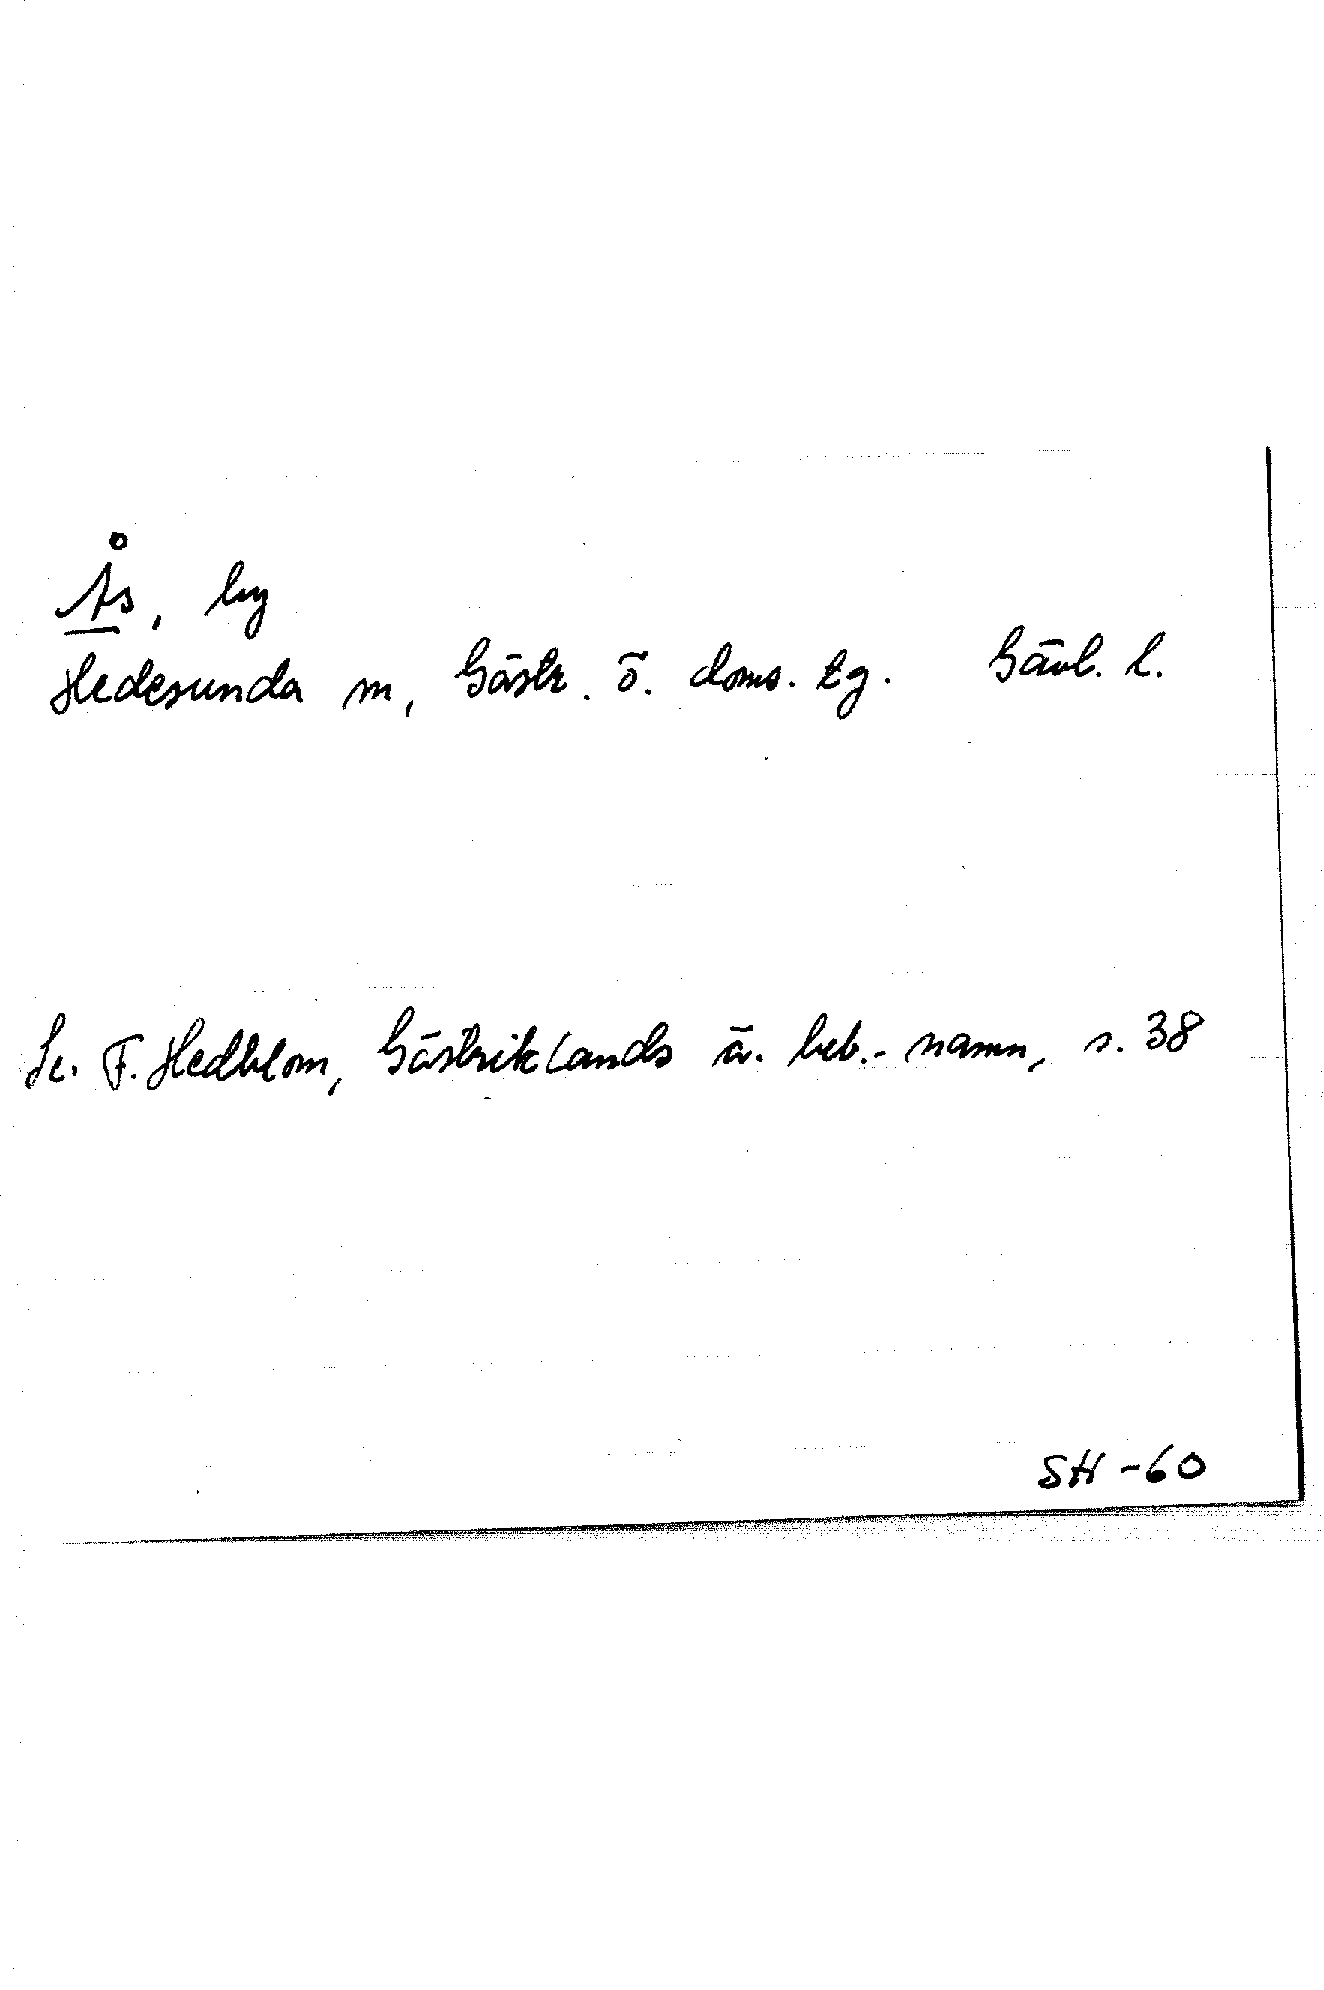 Ås, by
Hedesunda sn, Gästr. ö. doms. tg. Gävl. l.
Se. F. Hedblom, Gästriklands ä. beb.-namn, s. 38
SH -60